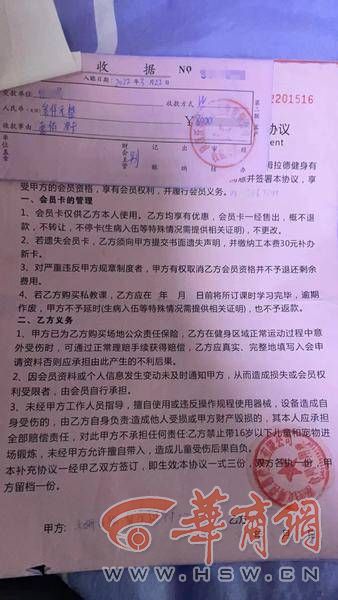 收 据 NO
入账日期：2022年3月22日
交款单位
收款方式
人民币（大写）
￥
收款事由
2201516
协议
ent
海拉德健身有
愿并签署本协议，享
受甲方的会员资格，享有会员权利，并履行会员义务。
一、会员卡的管理
1、会员卡仅供乙方本人使用。乙方均享有优惠，会员卡一经售出，概不退
款，不转让，不停卡(生病入伍等特殊情况需提供相关证明)，不更改。
2、若遗失会员卡，乙方须向甲方提交书面遗失声明，并缴纳工本费30元补办
新卡。
3、对严重违反甲方规章制度者，甲方有权取消乙方会员资格并不予退还剩余
费用。
4、若乙方购买私教课，乙方应在 年 月 日前将所订课时学习完毕，逾期
作废，甲方不予延时(生病入伍等特殊情况需提供相关证明)，也不予退款。
二、乙方义务
1、甲方已为乙方购买场地公众责任保险，乙方在健身区域正常运动过程中意
外受伤时，可通过正常理赔手续获得赔偿，乙方应真实、完整地填写入会申
请资料否则应承担由此产生的不利后果。
2、因会员资料或个人信息发生变动未及时通知甲方，从而造成损失或会员权
利受限者，由会员自行承担。
3、未经甲方工作人员指导，擅自使用或违反操作规程使用器械，设备造成自
身受伤的，由乙方自身负责;造成他人受损或甲方财产毁损的，其本人应承担
全部赔偿责任，对此甲方不承担任何责任:乙方禁止带16岁以下儿童和宠物进
场锻炼，未经甲方允许擅自带入，造成儿童受伤后果自负。
本补充协议一经甲乙双方签订，即生效本协议一式三份，双方各执一份，甲
方留档一份。
甲方：
乙方
年 月 日
华商网
WWW.HSW.CN